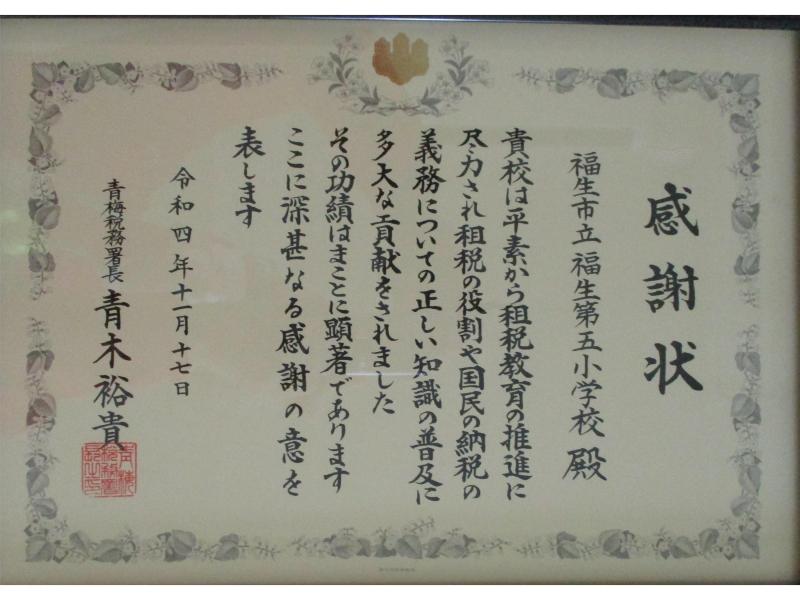 感謝状
福生市立 福生第五小学校 殿
貴校は平素から租税教育の推進に
尽力され租税の役割や国民の納税の
義務についての正しい知識の普及に
多大な貢献をされました
その功績はまことに顕著であります
ここに深甚なる感謝の意を
表します
令和四年十一月十七日
青梅税務署長 青木裕貴